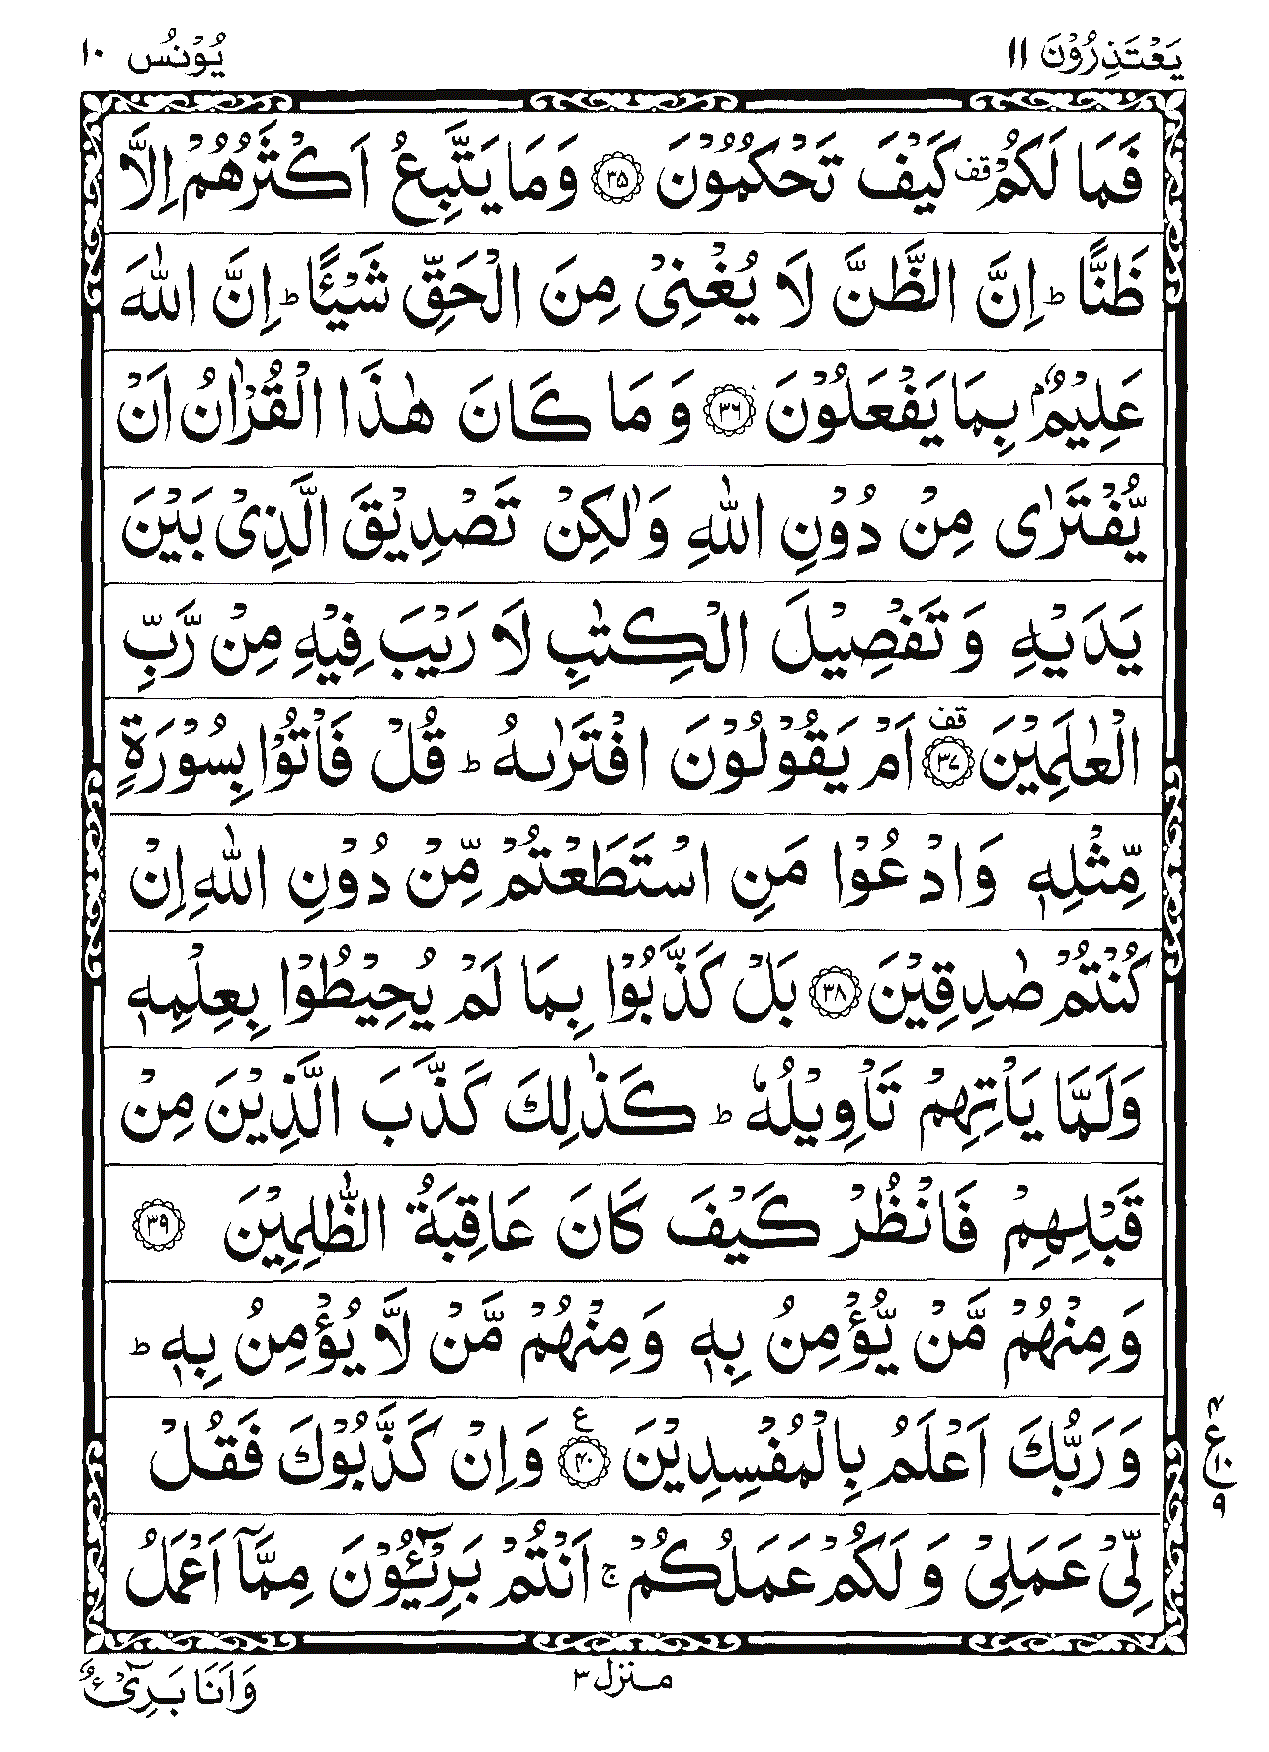 يَعْتَذِرُوْنَ ١١
يُوْنُس ١٠
فَمَا لَكُمْ قف كَيْفَ تَحْكُمُوْنَ ﴿۳۵﴾ وَمَا يَتَّبِعُ اَكْثَرُهُمْ اِلَّا
ظَنًّا ؕ اِنَّ الظَّنَّ لَا يُغْنِىْ مِنَ الْحَقِّ شَيْـًٔا ؕ اِنَّ اللّٰهَ
عَلِيْمٌۢ بِمَا يَفْعَلُوْنَ ﴿۳۶﴾ وَ مَا كَانَ هٰذَا الْقُرْاٰنُ اَنْ
يُّفْتَرٰى مِنْ دُوْنِ اللّٰهِ وَلٰكِنْ تَصْدِيْقَ الَّذِىْ بَيْنَ
يَدَيْهِ وَ تَفْصِيْلَ الْكِتٰبِ لَا رَيْبَ فِيْهِ مِنْ رَّبِّ
الْعٰلَمِيْنَ ﴿۳۷﴾ قف اَمْ يَقُوْلُوْنَ افْتَرٰىهُ ؕ قُلْ فَاْتُوْا بِسُوْرَةٍ
مِّثْلِهٖ وَادْعُوْا مَنِ اسْتَطَعْتُمْ مِّنْ دُوْنِ اللّٰهِ اِنْ
كُنْتُمْ صٰدِقِيْنَ ﴿۳۸﴾ بَلْ كَذَّبُوْا بِمَا لَمْ يُحِيْطُوْا بِعِلْمِهٖ
وَلَمَّا يَاْتِهِمْ تَاْوِيْلُهٗ ؕ كَذٰلِكَ كَذَّبَ الَّذِيْنَ مِنْ
قَبْلِهِمْ فَانْظُرْ كَيْفَ كَانَ عَاقِبَةُ الظّٰلِمِيْنَ ﴿۳۹﴾
وَمِنْهُمْ مَّنْ يُّؤْمِنُ بِهٖ وَمِنْهُمْ مَّنْ لَّا يُؤْمِنُ بِهٖ ؕ
وَرَبُّكَ اَعْلَمُ بِالْمُفْسِدِيْنَ ﴿۴۰﴾ ع وَاِنْ كَذَّبُوْكَ فَقُلْ
۴ ع ١٠ ٩
لِّىْ عَمَلِىْ وَ لَكُمْ عَمَلُكُمْ ۚ اَنْتُمْ بَرِيْٓـُٔوْنَ مِمَّاۤ اَعْمَلُ
منزل ٣
وَاَنَا بَرِىْٓءٌ